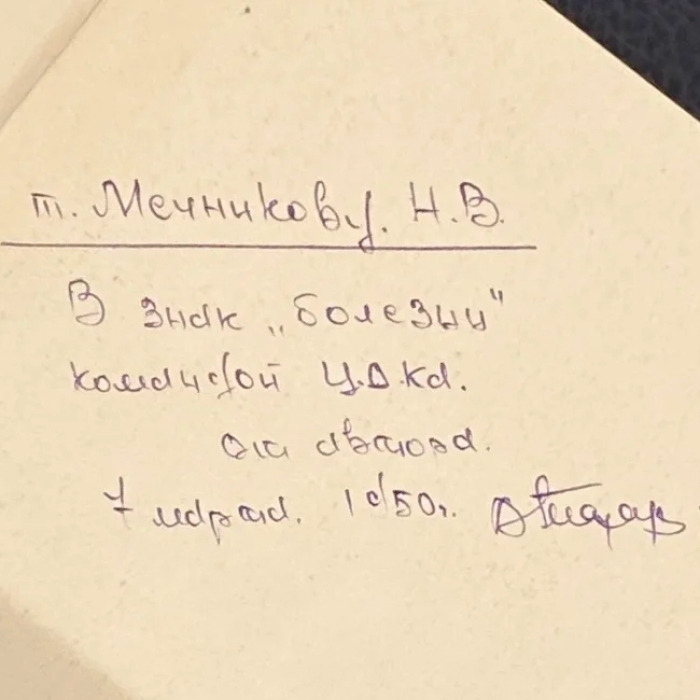 т. Мечникову. Н.В.
В знак „болезни"
командой Ц.Д.Ка.
от автора.
7 марта. 1950г.